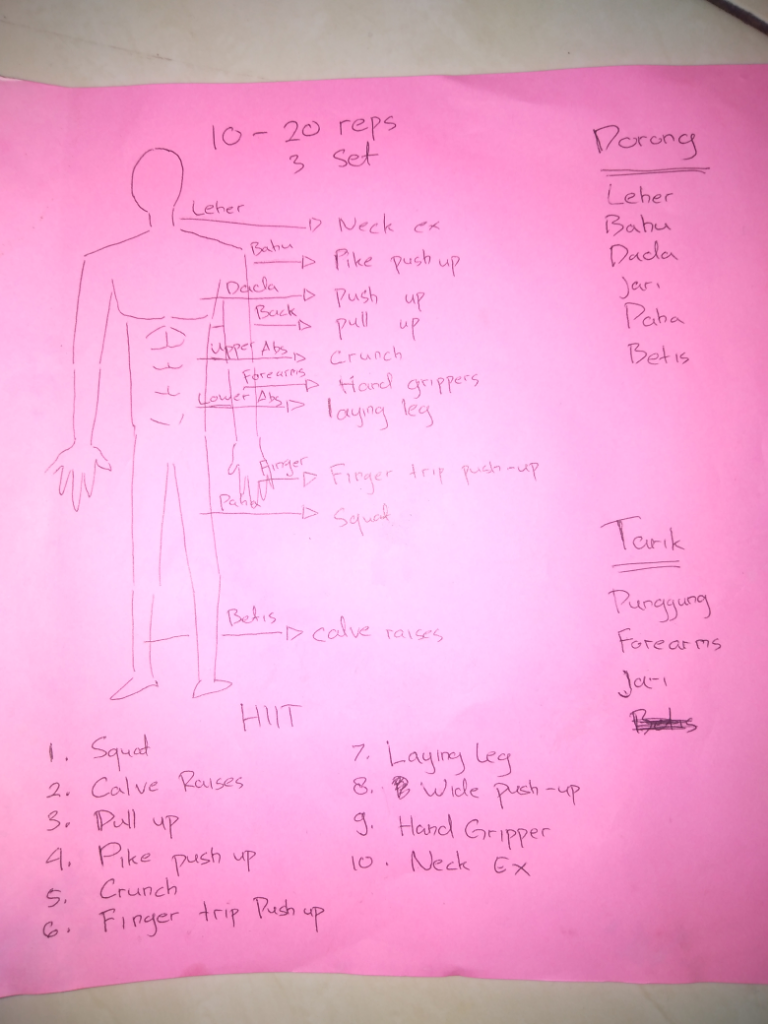 10 - 20 reps
3 set
Leher Neck ex
Bahu Pike push up
Dada Push up
Back pull up
Upper Abs Crunch
Forearms Hand grippers
Lower Abs laying leg
Finger Finger trip push-up
Paha Squat
Betis Calve raises
Dorong
Leher
Bahu
Dada
Jari
Paha
Betis
Tarik
Punggung
Forearms
Jari
Betis
HIIT
1. Squat
2. Calve Raises
3. Pull up
4. Pike push up
5. Crunch
6. Finger trip Push up
7. Laying Leg
8. Wide push-up
9. Hand Gripper
10. Neck Ex